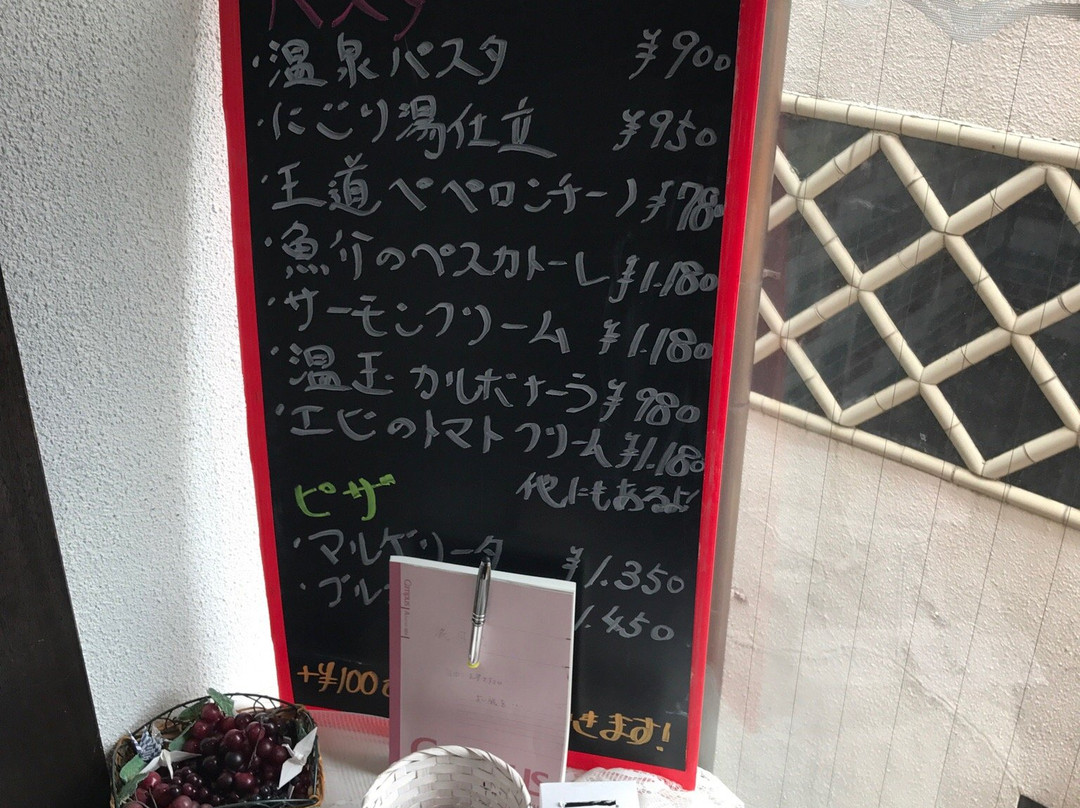 パスタ
・温泉パスタ ¥900
・にごり湯仕立 ¥950
・王道ペペロンチーノ ¥780
・魚介のペスカトーレ ¥1.180
・サーモンクリーム ¥1.180
・温玉カルボナーラ ¥980
・エビのトマトクリーム ¥1.180
他にもあるよ!
ピザ
・マルゲリータ ¥1.350
・ゴル 1.450
+¥100
きます!
Campus